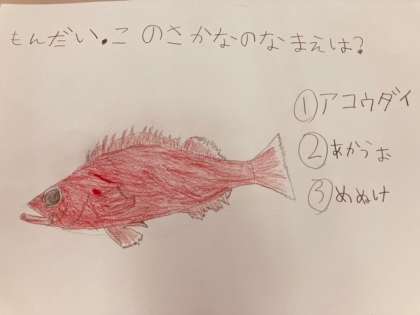 もんだい.このさかなのなまえは?
①アコウダイ
②あかうお
③めぬけ